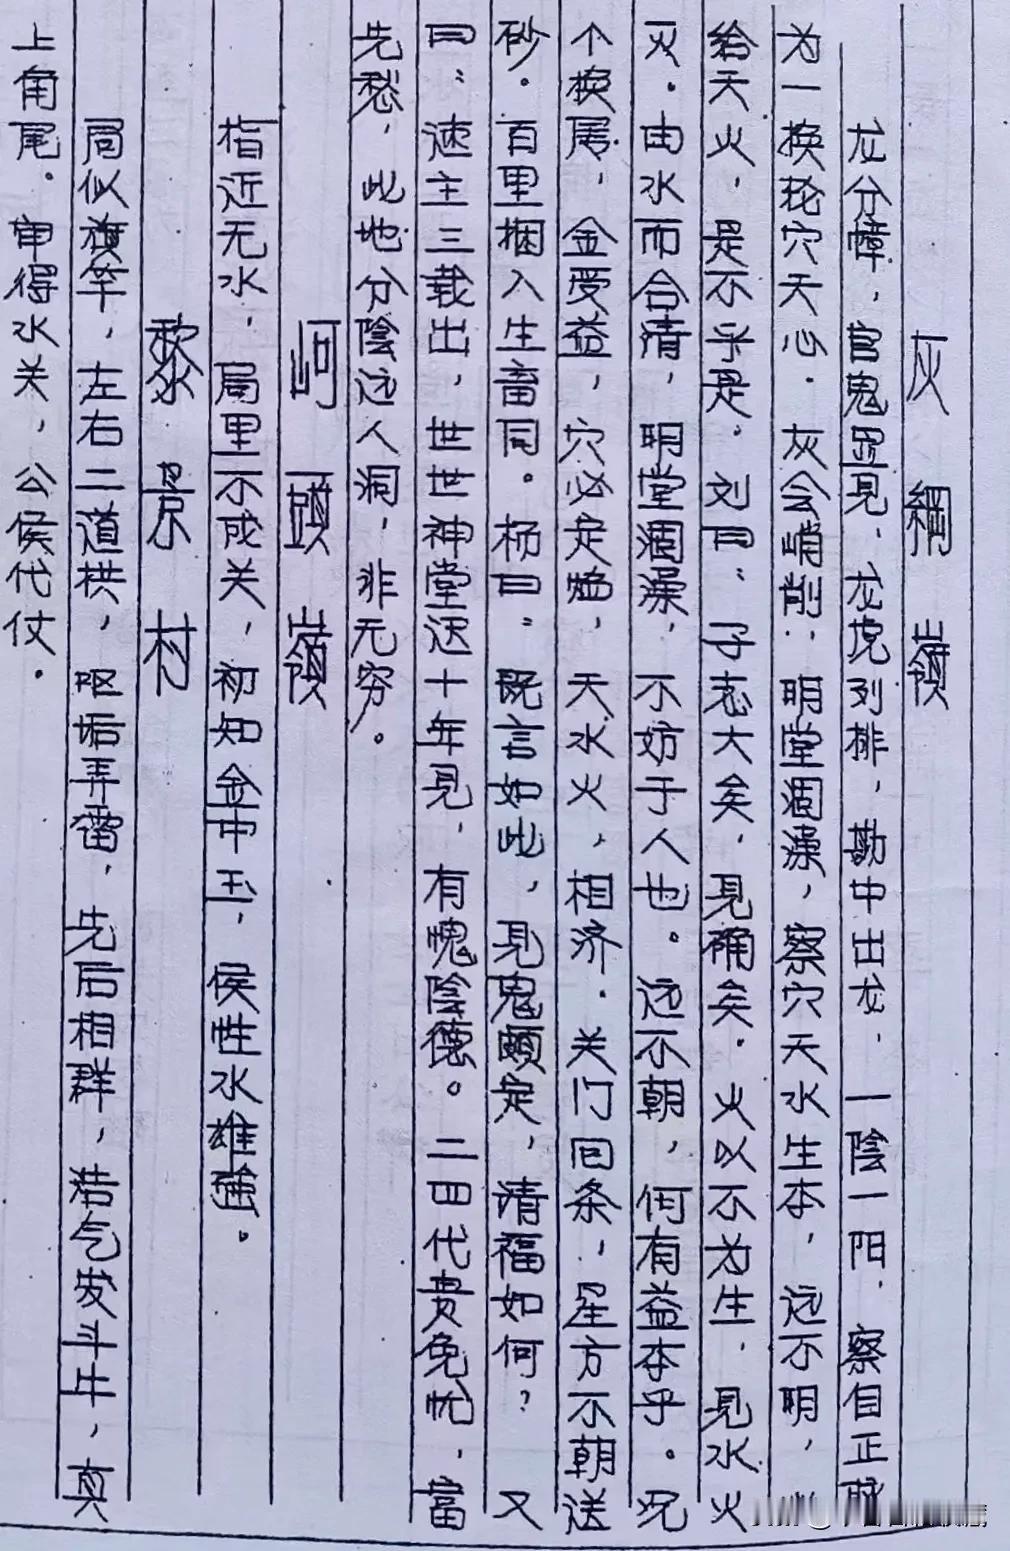 灰繝嶺
龙分幛，官鬼显见，龙虎列排，勘中出龙，一陰一阳，察自正脉
为一换轮穴天心．灰会峭削．明堂涸澡，察穴天水生本，远不明，
给天火，是不乎是．刘曰：子志大矣，见确矣．火以不为生，见水火
灭．由水而合清，明堂涸澡，不妨于人也。远不朝，何有益本乎。况
个换居，金受益，穴必定焰，天水火，相济．关门回条，星方不朝送
砂．百里捆入生畜同。杨曰：既言如此，见鬼颇定，清福如何？又
曰：速主三载出，世世神堂迗十年見，有愧陰德。二四代贵免忙，當
先愁，此地分陰远人洞，非无穷。
岢頭嶺
指近无水，局里不成关，初知金中玉，侯性水雄強。
黎景村
局似旗竿，左右二道拱，呕垢弄雷，先后相群，浩气发斗牛，真
上角尾．审得水关，公侯代仗．